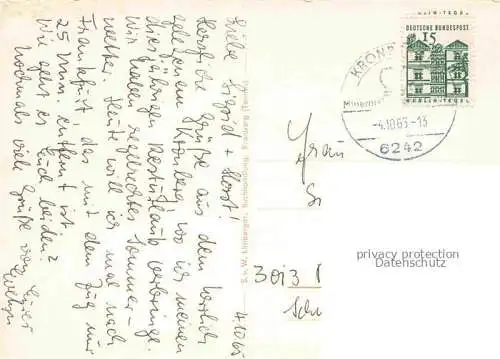 4.10.65
Liebe Sigrid + Horst!
Herzliche Grüße aus dem herrlich
gelegenem Kronberg, wo ich meinen
diesjährigen Resturlaub verbringe.
Wir haben regelrechtes Sommer-
wetter. Heute will ich mal nach
Frankfurt, das mit dem Zug nur
25 Min. entfernt ist.
Wie geht es Euch beiden?
Nochmals viele Grüße von Eurer
Evelyn
S. u. W. Lohberger, Buchhandlung, Kronberg (Taunus)
BERLIN-TEGEL
DEUTSCHE BUNDESPOST
15
BERLIN-TEGEL
KRONB
Minera
-4.10.65-13
6242
Frau
3013
privacy protection
Datenschutz